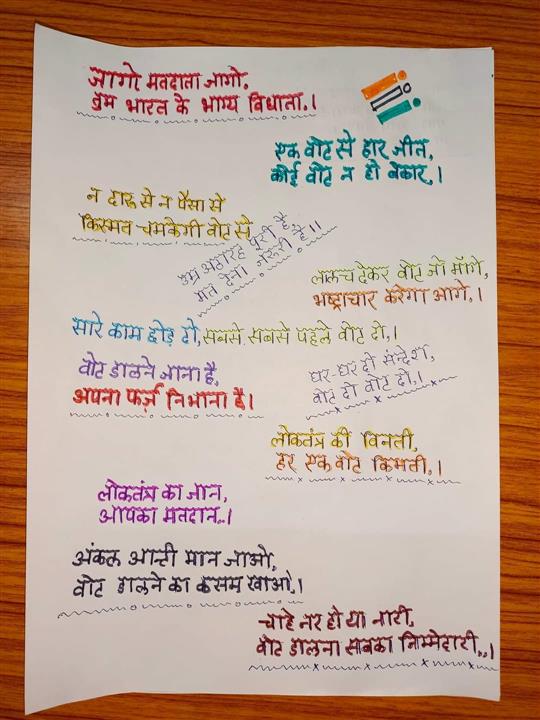 जागो मतदाता जागो,
तुम भारत के भाग्य विधाता.।
एक वोट से हार जीत,
कोई वोट न हो बेकार.।
न दारू से न पैसा से
किस्मत चमकेगी वोट से
उम्र अठारह पूरी है,
मत देना जरूरी है।।
लालच देकर वोट जो माँगे,
भष्ट्राचार करेगा आगे.।
सारे काम छोड़ दो, सबसे सबसे पहले वोट दो.।
वोट डालने जाना है,
अपना फर्ज़ निभाना है।
घर-घर दो सन्देश,
वोट दो वोट दो.।
लोकतंत्र की विनती,
हर एक वोट किमती.।
लोकतंत्र का जान,
आपका मतदान..।
अंकल आन्टी मान जाओ,
वोट डालने का कसम खाओ.।
चाहे नर हो या नारी,
वोट डालना सबका जिम्मेदारी..।